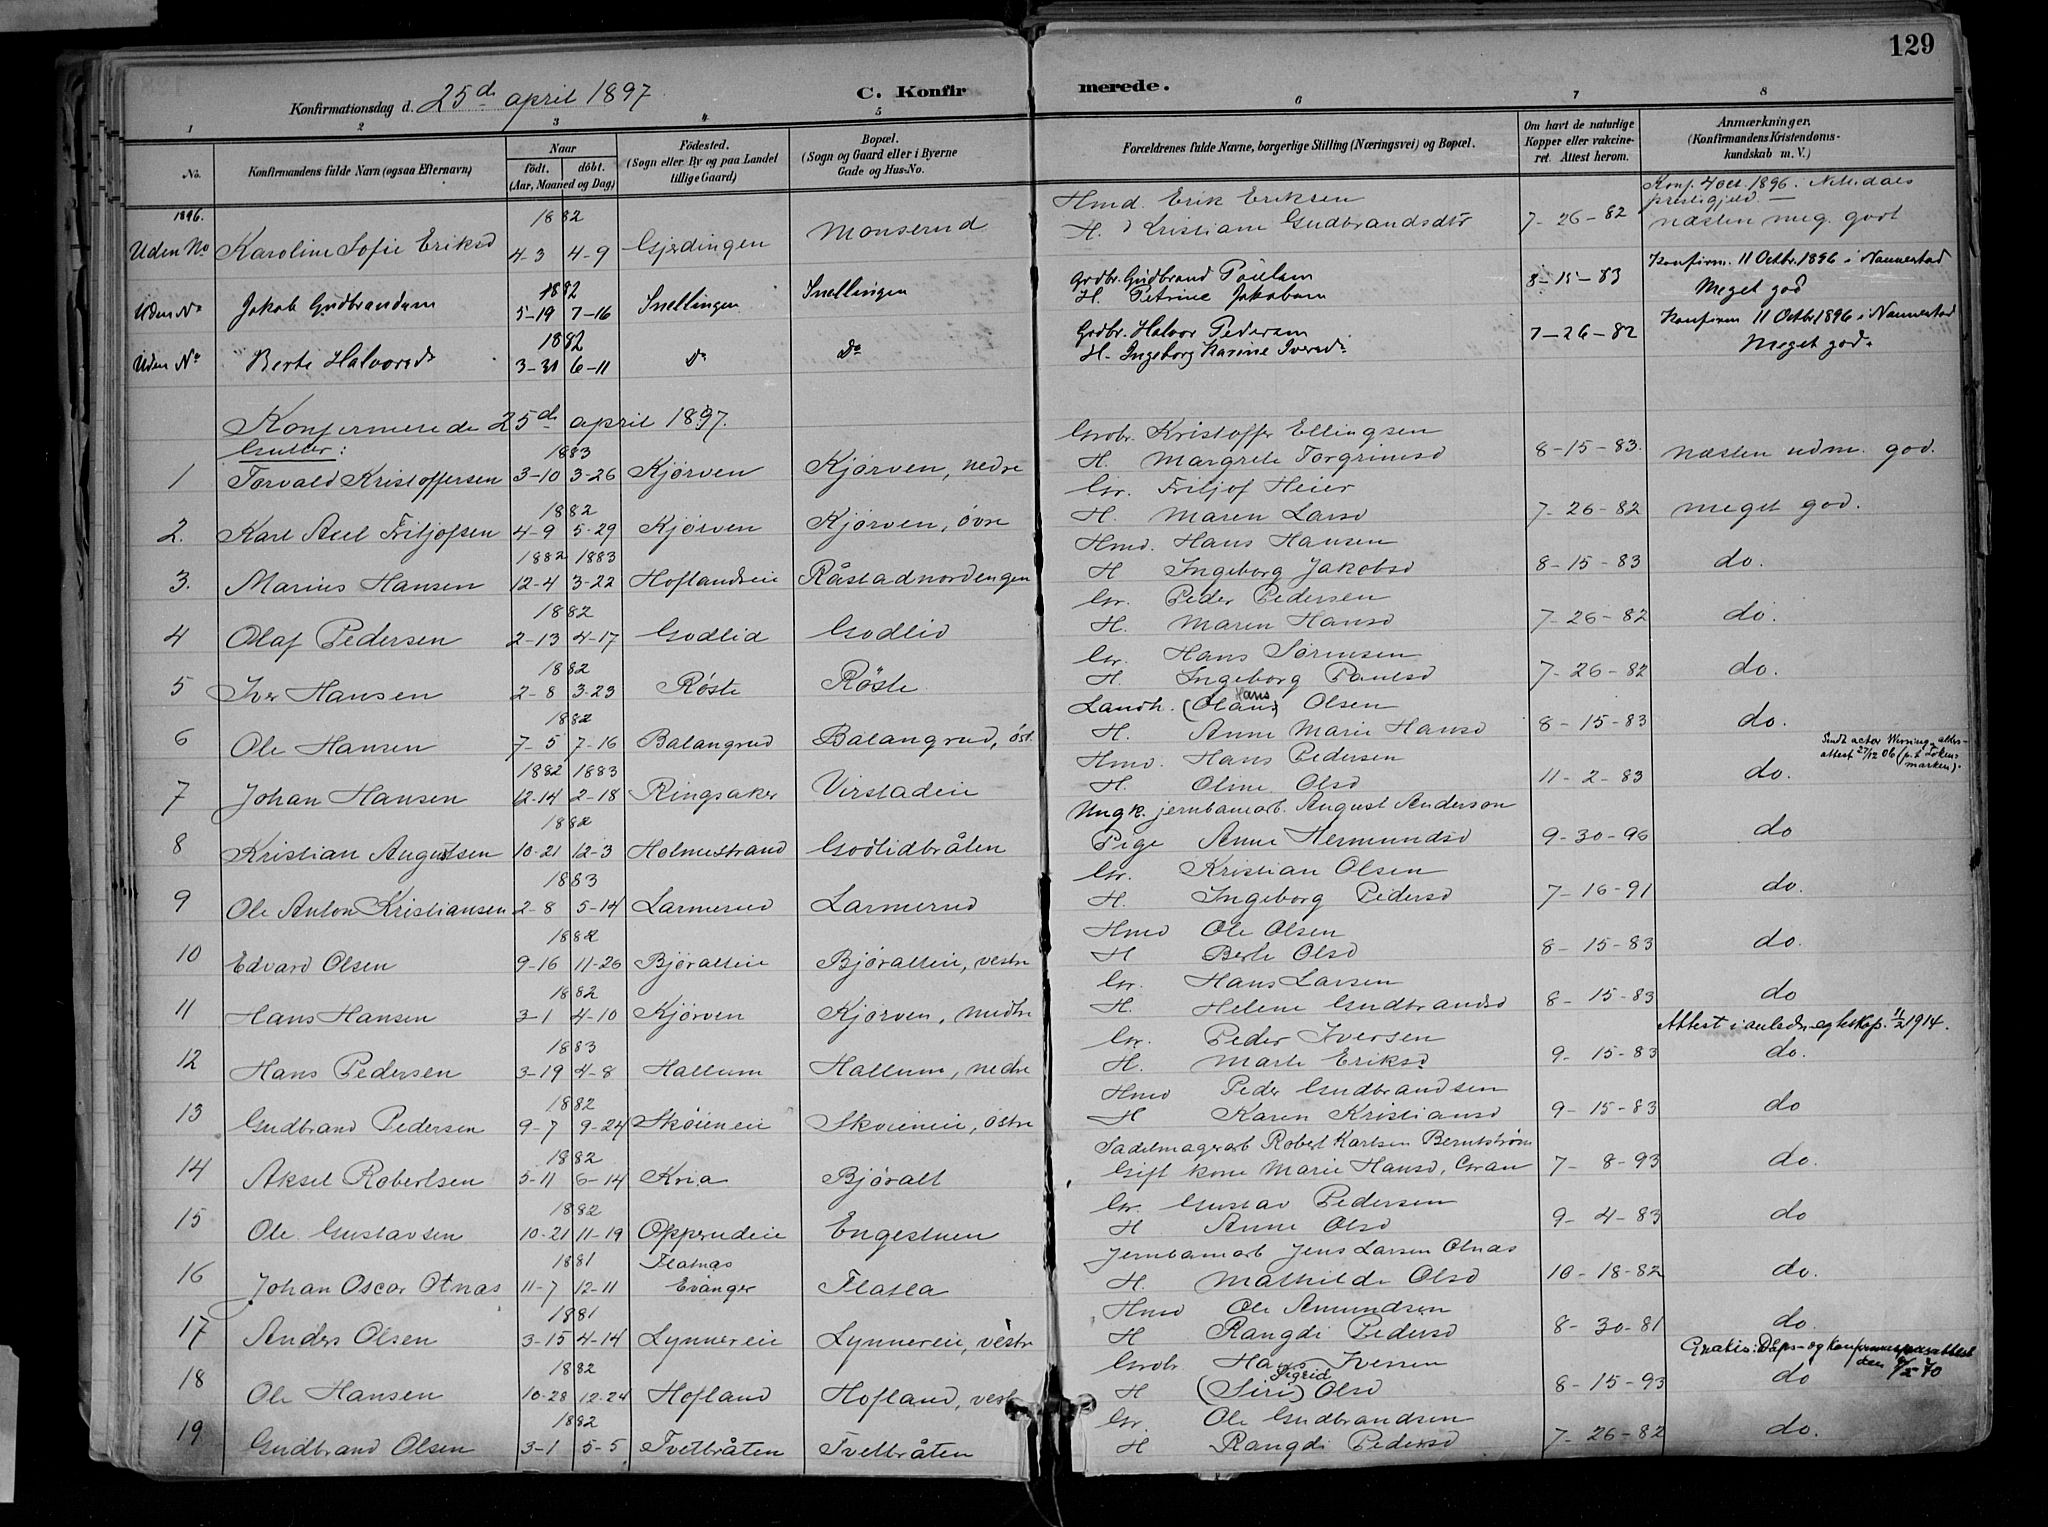 129
Konfirmationsdag d. 25de april 1897.
C. Konfirmerede.
1 2 3 4 5 6 7 8
No. Konfirmandens fulde Navn (ogsaa Efternavn) Naar født. døbt. (Aar, Maaned og Dag) Fødested. (Sogn eller By og paa Landet tillige Gaard) Bopæl. (Sogn og Gaard eller i Byerne Gade og Hus-No. Forældrenes fulde Navne, borgerlige Stilling (Næringsvei) og Bopæl. Om havt de naturlige Kopper eller vakcineret. Attest herom. Anmærkninger. (Konfirmandens Kristendomskundskab m. V.)
1896. 1882 Hmd. Erik Eriksen Konf. 4 oct. 1896. Nittedals præstegjeld. —
Uden No Karoline Sofie Eriksd 4-3 4-9 Gjerdingen Monserud H. Kristiane Gudbrandsdtr 7-26-82 næsten meg. godt
1882 Grdbr. Gudbrand Paulsen Konfirm. 11 Octbr. 1896 i Nannestad
Uden No Jakob Gudbrandsen 5-19 7-16 Snellingen Snellingen H. Petrine Jakobsen 8-15-83 Meget god
1882 Grdbr. Halvor Pedersen Konfirm 11 Octbr 1896 i Nannestad
Uden No Berte Halvorsd 3-31 6-11 Do Do H. Ingeborg Karine Iversd. 7-26-82 Meget god.
Konfirmerede 25de april 1897.
Gutter: 1883 Grobr. Kristoffer Ellingsen
1 Torvald Kristoffersen 3-10 3-26 Kjørven Kjørven, nedre H. Margrete Torgrimsd 8-15-83. næsten udm. god.
1882 Gr. Fritjof Heier
2. Karl Axel Fritjofsen 4-9 5-29 Kjørven Kjørven, øvre H. Maren Larsd 7-26-82 meget god.
1882 1883 Hmd. Hans Hansen
3. Marius Hansen 12-4 3-22 Hoflandseie Råstadnordengen H Ingeborg Jakobsd 8-15-83 do.
1882 Gr. Peder Pedersen
4 Olaf Pedersen 2-13 4-17 Godlid Godlid H. Maren Hansd 7-26-82 do.
1882 Gr. Hans Sørensen
5 Iver Hansen 2-8 3-23 Røste Røste H Ingeborg Paulsd 7-26-82 do.
1882 Landh. (Olaus) Hans Olsen
6 Ole Hansen 7-5 7-16 Balangrud Balangrud, øst. H. Anne Marie Hansd 8-15-83 do.
1882 1883 Hmd. Hans Pedersen
7 Johan Hansen 12-14 2-18 Ringsaker Virstadeie H. Oline Olsd 11-2-83 do.
1882 Ungk. jernbanearb. August Anderson
8 Kristian Augustsen 10-21 12-3 Holmestrand Godlidbråten Pige Anne Hermundsd 9-30-96 do
1883 Gr. Kristian Olsen
9 Ole Anton Kristiansen 2-8 5-14 Larmerud Larmerud H. Ingeborg Pedersd 7-16-91 do.
1882 Hmd Ole Olsen
10 Edvard Olsen 9-16 11-26 Bjøralteie Bjøralteie, vestre H Berte Olsd 8-15-83 do.
1882 Gr. Hans Larsen
11 Hans Hansen 3-1 4-10 Kjørven Kjørven, midtre H. Helene Gudbrandsd 8-15-83 do
1883 Gr. Peder Iversen Attest i anledn. egteskap. 11/2 1914.
12 Hans Pedersen 3-19 4-8 Hallum Hallum, nedre H. Marte Eriksd 9-15-83 do.
1882 Hmd Peder Gudbrandsen
13 Gudbrand Pedersen 9-7 9-24 Skøieneie Skøieneie, østre H Karen Kristiansd 9-15-83 do
1882 Sadelmagerarb Robert Karlsen Berntstrøm
14 Aksel Robertsen 5-11 6-14 Kria Bjøralt Gift kone Marie Hansd, Gran 7-8-93 do.
1882 Gr. Gustav Pedersen
15 Ole Gustavsen 10-21 11-19 Opperudeie Engestuen H Anne Olsd 9-4-83 do
1881 Flatnas Jernbanearb Jens Larsen Otnas
16 Johan Oscar Otnas 11-7 12-11 Evanger Flatla H. Mathilde Olsd 10-18-82 do.
1881 Hmd Ole Amundsen
17 Anders Olsen 3-15 4-14 Lynnereie Lynnereie, vestre H Rangdi Pedersd 8-30-81 do.
1882 Grobr Hans Iversen Gratis: Dåps- og konfirmasjonsattest
18 Ole Hansen 10-28 12-24 Hofland Hofland, vestre H (Siri) Sigrid Olsd 8-15-93 do
1882 Gr. Ole Gudbrandsen
19 Gudbrand Olsen 3-1 5-5 Tvetbråten Tvetbråten H Rangdi Pedersd 7-26-82 do.